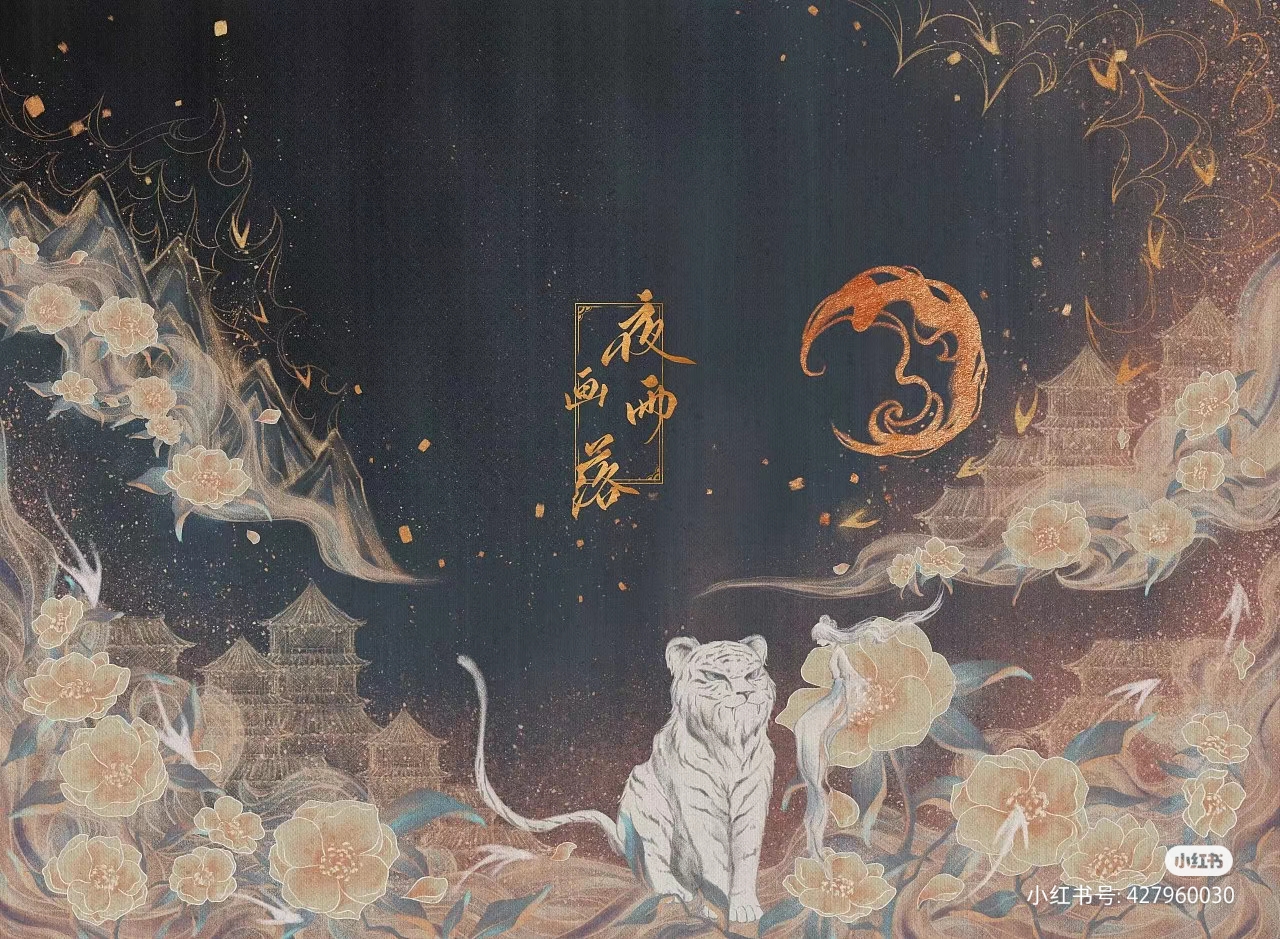 夜雨
画落
小红书
小红书号: 427960030